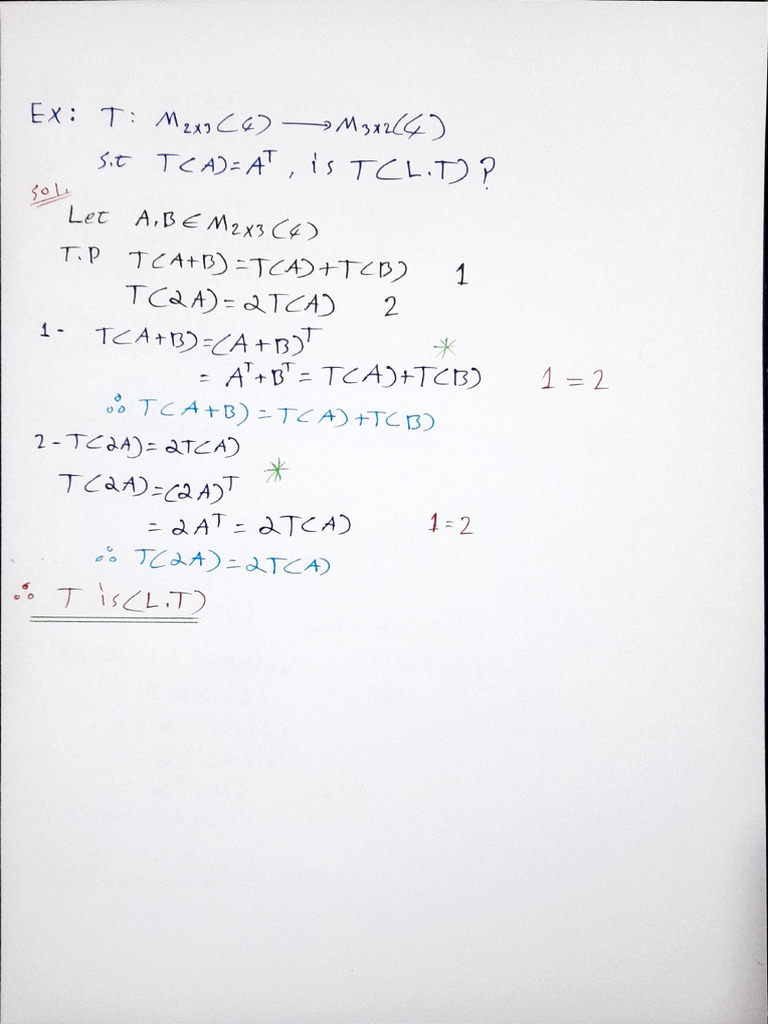 Ex: T: M₂ₓ₃(¢) ⟶ M₃ₓ₂(¢)
s.t T(A)=Aᵀ, is T(L.T)?
sol.
Let A,B∈M₂ₓ₃(¢)
T.P T(A+B)=T(A)+T(B) 1
T(αA)=αT(A) 2
1- T(A+B)=(A+B)ᵀ *
= Aᵀ+Bᵀ= T(A)+T(B) 1=2
∴ T(A+B)=T(A)+T(B)
2-T(αA)=αT(A)
T(αA)=(αA)ᵀ *
= αAᵀ= αT(A) 1=2
∴ T(αA)=αT(A)
∴ T is(L.T)